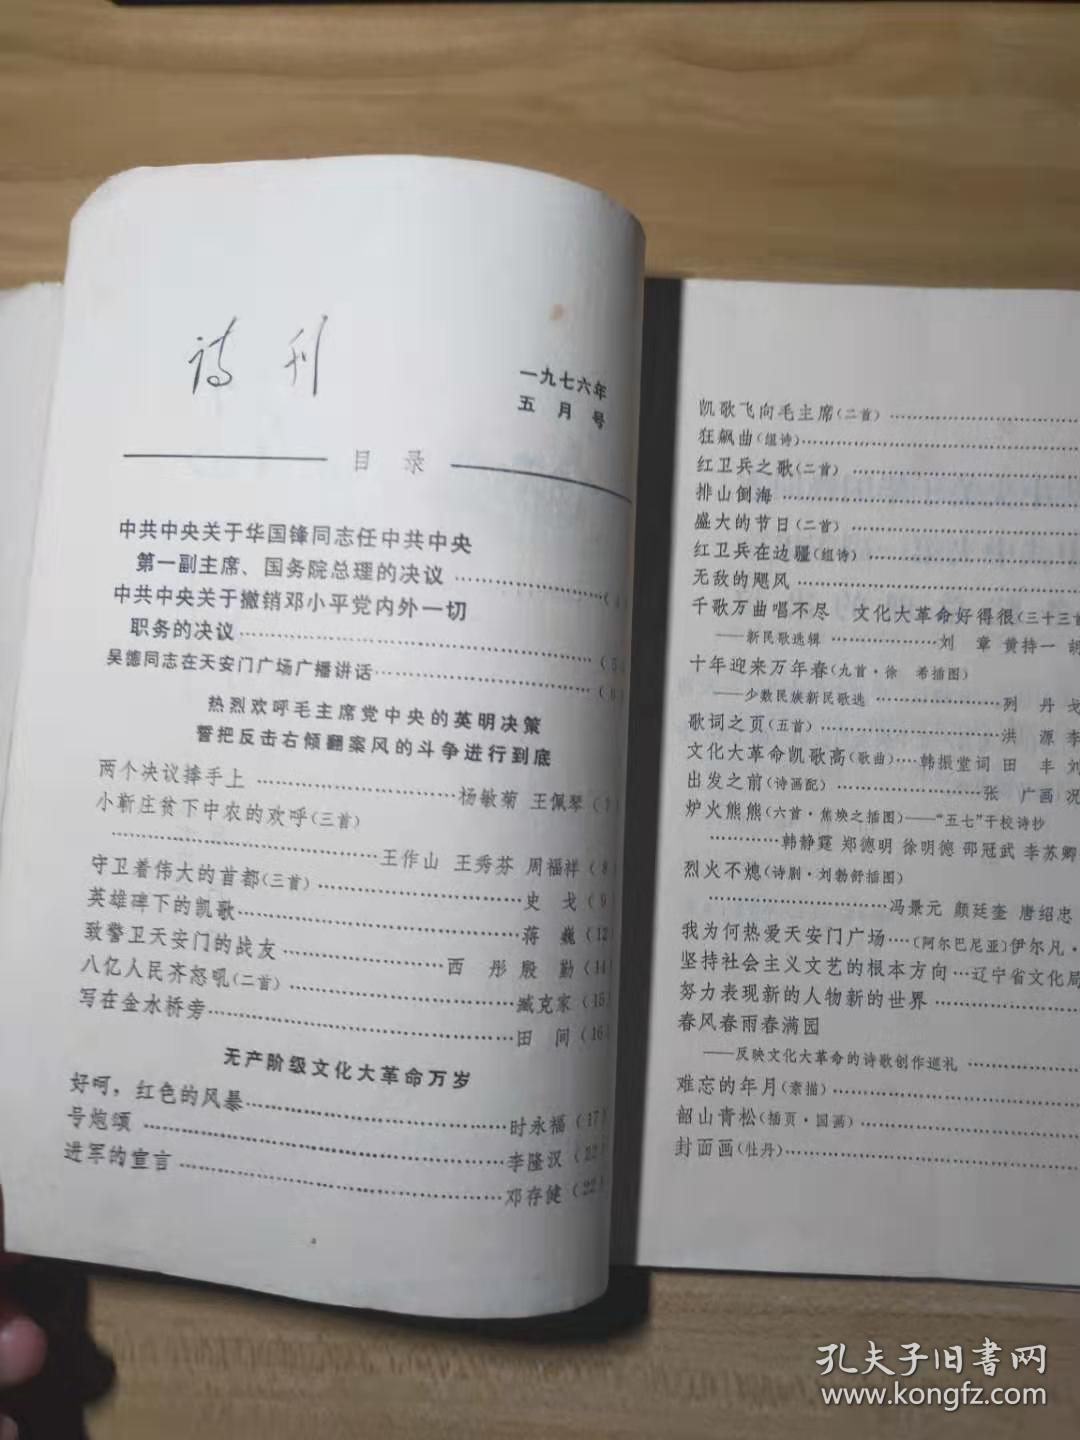 诗刊
一九七六年
五月号
目录
中共中央关于华国锋同志任中共中央
第一副主席、国务院总理的决议
中共中央关于撤销邓小平党内外一切
职务的决议 (5)
吴德同志在天安门广场广播讲话 (6)
热烈欢呼毛主席党中央的英明决策
誓把反击右倾翻案风的斗争进行到底
两个决议捧手上 杨敏菊 王佩琴 (7)
小靳庄贫下中农的欢呼(三首)
王作山 王秀芬 周福祥 (8)
守卫着伟大的首都(三首) 史戈 (9)
英雄碑下的凯歌 蒋巍 (12)
致警卫天安门的战友 西彤 殷勤 (14)
八亿人民齐怒吼(二首) 臧克家 (15)
写在金水桥旁 田间 (16)
无产阶级文化大革命万岁
好呵，红色的风暴 时永福 (17)
号炮颂 李隆汉 (22)
进军的宣言 邓存健 (22)
凯歌飞向毛主席(二首)
狂飙曲(组诗)
红卫兵之歌(二首)
排山倒海
盛大的节日(二首)
红卫兵在边疆(组诗)
无敌的飓风
千歌万曲唱不尽 文化大革命好得很(三十三首
——新民歌选辑 刘章 黄持一 胡
十年迎来万年春(九首·徐希插图)
——少数民族新民歌选 列丹戈
歌词之页(五首) 洪源 李
文化大革命凯歌高(歌曲) 韩振堂词 田丰 刘
出发之前(诗画配) 张广画 况
炉火熊熊(六首·焦焕之插图)——“五七”干校诗抄
韩静霆 郑德明 徐明德 邵冠武 李苏卿
烈火不熄(诗剧·刘勃舒插图)
冯景元 颜廷奎 唐绍忠
我为何热爱天安门广场 (阿尔巴尼亚)伊尔凡·
坚持社会主义文艺的根本方向 辽宁省文化局
努力表现新的人物新的世界
春风春雨春满园
——反映文化大革命的诗歌创作巡礼
难忘的年月(素描)
韶山青松(插页·国画)
封面画(牡丹)
孔夫子旧書网
www.kongfz.com